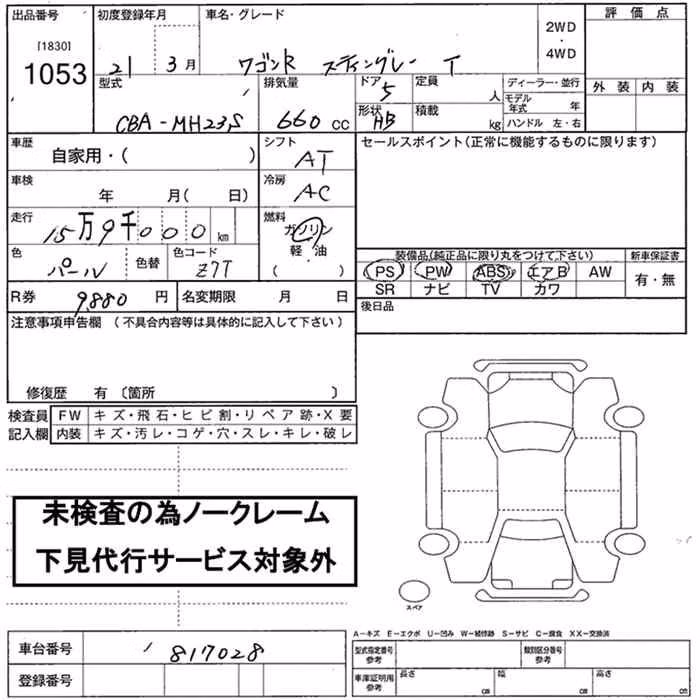 出品番号 初度登録年月 車名・グレード 2WD・4WD 評価点
[1830]
1053
21 3月 ワゴンR スティングレー T
型式 排気量 ドア 定員 ディーラー・並行 外装 内装
5 人 モデル年式 年
CBA-MH23S 660 CC 形状 AB 積載 kg ハンドル 左・右
車歴 シフト セールスポイント(正常に機能するものに限ります)
自家用・( ) AT
車検 冷房
年 月( 日) AC
走行 燃料
15万9千000 km ガソリン
軽・油
( )
色 色替 色コード 装備品(純正品に限り丸をつけて下さい) 新車保証書
パール Z7T PS PW ABS エアB AW 有・無
SR ナビ TV カワ
R券 9,880 円 名変期限 月 日 後日品
注意事項申告欄 (不具合内容等は具体的に記入して下さい)
修復歴 有 〔箇所 〕
検査員 FW キズ・飛石・ヒビ割・リペア跡・X要
記入欄 内装 キズ・汚レ・コゲ・穴・スレ・キレ・破レ
未検査の為ノークレーム
下見代行サービス対象外
スペア
A-キズ E-エクボ U-凹み W-補修跡 S-サビ C-腐食 XX-交換済
車台番号 817028 型式指定番号 参考 類別区分番号 参考
登録番号 車庫証明用 参考 長さ cm 幅 cm 高さ cm